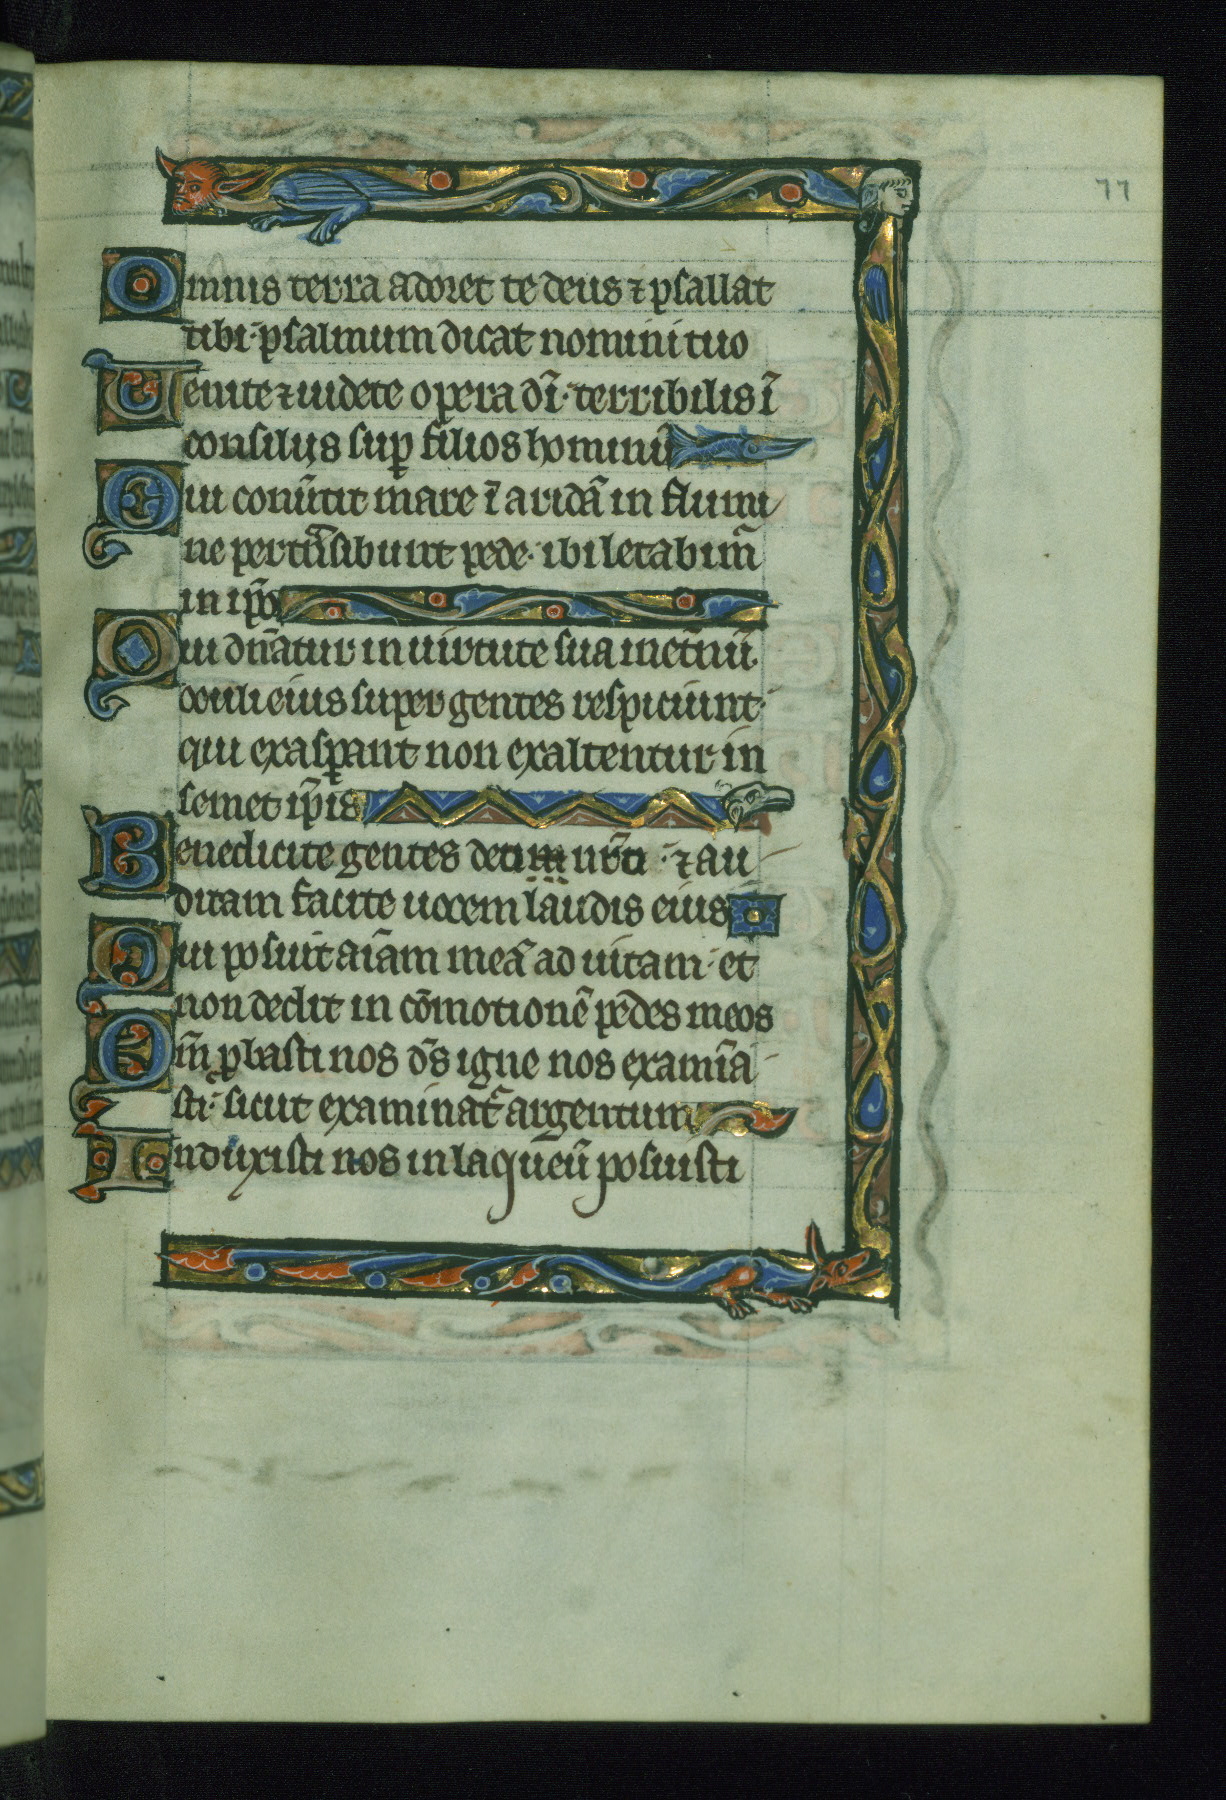 77
Omnis terra adoret te deus ⁊ psallat
tibi· psalmum dicat nomini tuo
Uenite ⁊ uidete opera dı̄· terribilis ı̄
consilijs suꝑ filios hominū
Qui conūtit mare ı̄ aridā in flumi
ne pertn̄sibunt pede· ibi letabim̄
in ip̄o
Qui dn̄atur in uirtute sua inet̄nū
oculi eius super gentes respiciunt·
qui exasꝑant non exaltentur in
semet ip̄is
Benedicite gentes deum nr̄m· ⁊ au
ditam facite uocem laudis eius
Qui posuit aı̄am meā ad uitam· et
non dedit in cōmotionē pedes meos
Qm̄ ꝓbasti nos ds̄ igne nos examı̄a
sti· sicut examinat᷑ argentum
Induxisti nos in laqueū posuisti